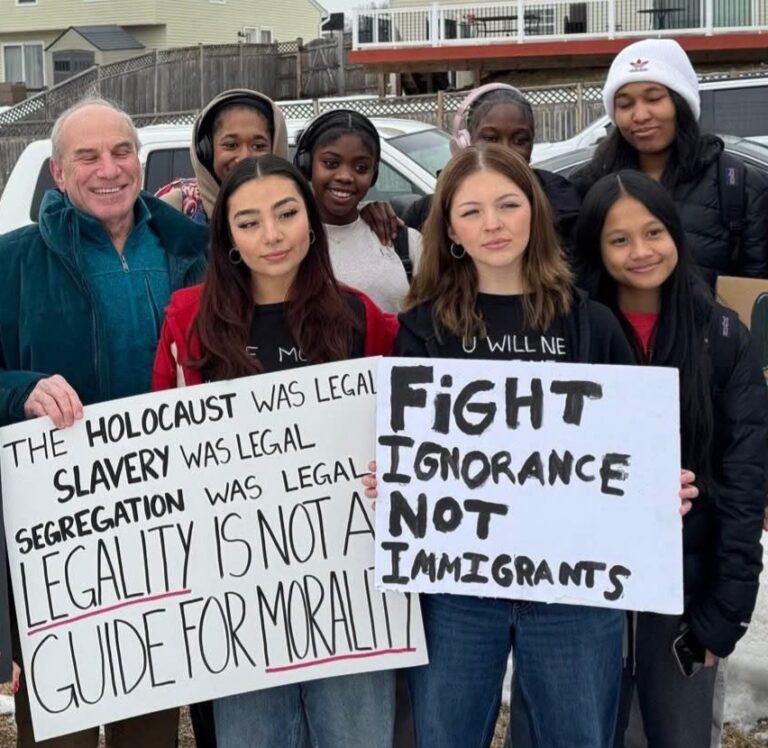 THE HOLOCAUST WAS LEGAL
SLAVERY WAS LEGAL
SEGREGATION WAS LEGAL
LEGALITY IS NOT A
GUIDE FOR MORALITY
FIGHT
IGNORANCE
NOT
IMMIGRANTS
U WILL NE